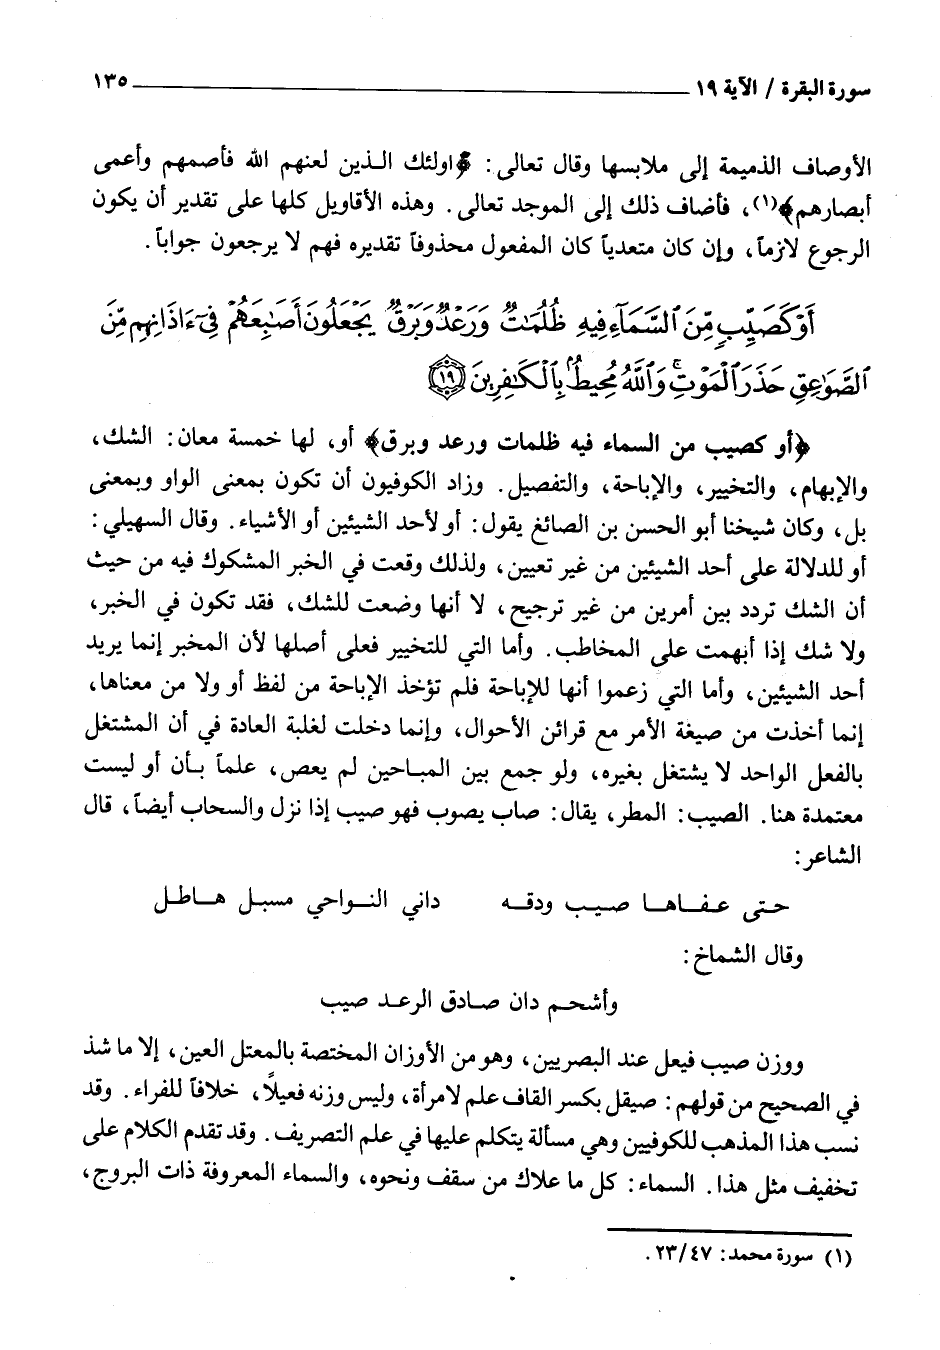 سورة البقرة / الآية ١٩ ــــــــــــــــــــــــــــــ ١٣٥
الأوصاف الذميمة إلى ملابسها وقال تعالى: ﴿اولئك الـذين لعنهم الله فأصمهم وأعمى
أبصارهم﴾(١)، فأضاف ذلك إلى الموجد تعالى. وهذه الأقاويل كلها على تقدير أن يكون
الرجوع لازماً، وإن كان متعدياً كان المفعول محذوفاً تقديره فهم لا يرجعون جواباً.
أَوْ كَصَيِّبٍ مِّنَ ٱلسَّمَآءِ فِيهِ ظُلُمَٰتٌ وَرَعْدٌ وَبَرْقٌ يَجْعَلُونَ أَصَٰبِعَهُمْ فِىٓ ءَاذَانِهِم مِّنَ
ٱلصَّوَٰعِقِ حَذَرَ ٱلْمَوْتِ ۚ وَٱللَّهُ مُحِيطٌۢ بِٱلْكَٰفِرِينَ ﴿١٩﴾
﴿أو كصيب من السماء فيه ظلمات ورعد وبرق﴾ أو، لها خمسة معان: الشك،
والإبهام، والتخيير، والإباحة، والتفصيل. وزاد الكوفيون أن تكون بمعنى الواو وبمعنى
بل، وكان شيخنا أبو الحسن بن الصائغ يقول: أو لأحد الشيئين أو الأشياء. وقال السهيلي:
أو للدلالة على أحد الشيئين من غير تعيين، ولذلك وقعت في الخبر المشكوك فيه من حيث
أن الشك تردد بين أمرين من غير ترجيح، لا أنها وضعت للشك، فقد تكون في الخبر،
ولا شك إذا أبهمت على المخاطب. وأما التي للتخيير فعلى أصلها لأن المخبر إنما يريد
أحد الشيئين، وأما التي زعموا أنها للإباحة فلم تؤخذ الإباحة من لفظ أو ولا من معناها،
إنما أخذت من صيغة الأمر مع قرائن الأحوال، وإنما دخلت لغلبة العادة في أن المشتغل
بالفعل الواحد لا يشتغل بغيره، ولو جمع بين المباحين لم يعص، علماً بـأن أو ليست
معتمدة هنا. الصيب: المطر، يقال: صاب يصوب فهو صيب إذا نزل والسحاب أيضاً، قال
الشاعر:
حتى عـفـاهـا صيـب ودقـه داني النـواحي مسبـل هـاطـل
وقال الشماخ:
وأشحـم دان صـادق الرعـد صيب
ووزن صيب فيعل عند البصريين، وهو من الأوزان المختصة بالمعتل العين، إلا ما شذ
في الصحيح من قولهم: صيقل بكسر القاف علم لامرأة، وليس وزنه فعيلاً، خلافاً للفراء. وقد
نسب هذا المذهب للكوفيين وهي مسألة يتكلم عليها في علم التصريف. وقد تقدم الكلام على
تخفيف مثل هذا. السماء: كل ما علاك من سقف ونحوه، والسماء المعروفة ذات البروج،
(١) سورة محمد: ٢٣/٤٧.